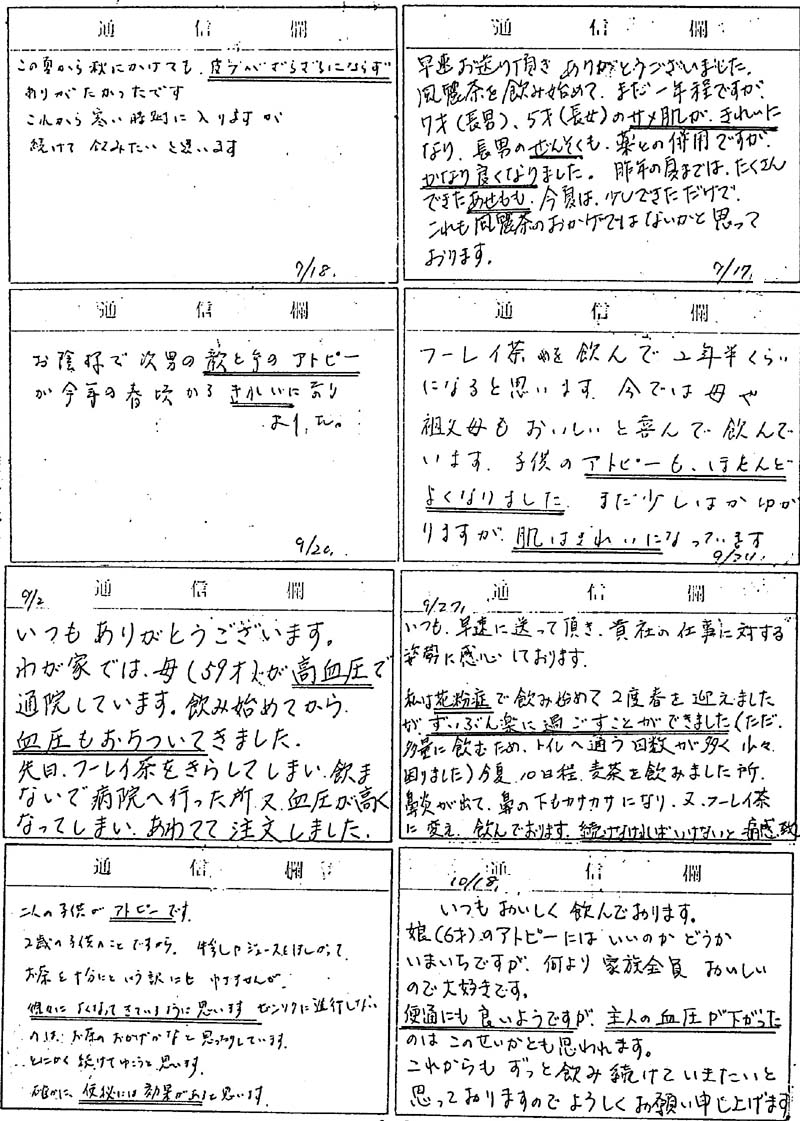 通信欄
この夏から秋にかけても、皮フがざらざらにならず
ありがたかったです
これから寒い時期に入りますが
続けて飲みたいと思います
7/18.
通信欄
早速お送り頂きありがとうございました。
風靈茶を飲み始めて、まだ一年程ですが、
7才(長男)、5才(長女)のサメ肌が、きれいに
なり、長男のぜんそくも、薬との併用ですが、
かなり良くなりました。昨年の夏までは、たくさん
できたあせもも、今夏は、少しできただけで、
これも風靈茶のおかげではないかと思って
おります。
7/17.
通信欄
お陰様で次男の アトピー
が今年の春頃からきれいになり
ました。
9/20.
通信欄
フーレイ茶 を飲んで2年半くらい
になると思います。今では母や
祖父母もおいしいと喜んで飲んで
います。子供のアトピーも、ほとんど
よくなりました。まだ少しはかゆが
りますが、肌はきれいになっています
通信欄
9/2
いつもありがとうございます。
わが家では、母(59才)が高血圧で
通院しています。飲み始めてから、
血圧もおちついてきました。
先日、フーレイ茶をきらしてしまい、飲ま
ないで病院へ行った所、又、血圧が高く
なってしまい、あわてて注文しました。
通信欄
9/27.
いつも、早速に送って頂き、貴社の仕事に対する
姿勢に感心しております。
私は花粉症で飲み始めて2度春を迎えました
がずいぶん楽に過ごすことができました(ただ、
多量に飲むため、トイレへ通う回数が多く少々
困りました)今夏、10日程、麦茶を飲みました所、
鼻炎が出て、鼻の下もカサカサになり、又、フーレイ茶
に変え、飲んでおります。続けなければいけないと痛感致
通信欄
二人の子供がアトピーです。
2歳の子供のことですから、 ジュースをほしがって、
お茶を十分にという訳にも ゆきませんが、
徐々によくなってきているように思います ゼンソクに進行しない
のは、お茶のおかげかなと思ったりしています。
とにかく続けてゆこうと思います。
確かに、便秘には効果があると思います。
通信欄
10/18.
いつもおいしく飲んでおります。
娘(6才)のアトピーにはいいのかどうか
いまいちですが、何より家族全員おいしい
ので大好きです。
便通にも良いようですが、主人の血圧が下がった
のはこのせいかとも思われます。
これからもずっと飲み続けていきたいと
思っておりますのでようしくお願い申し上げます